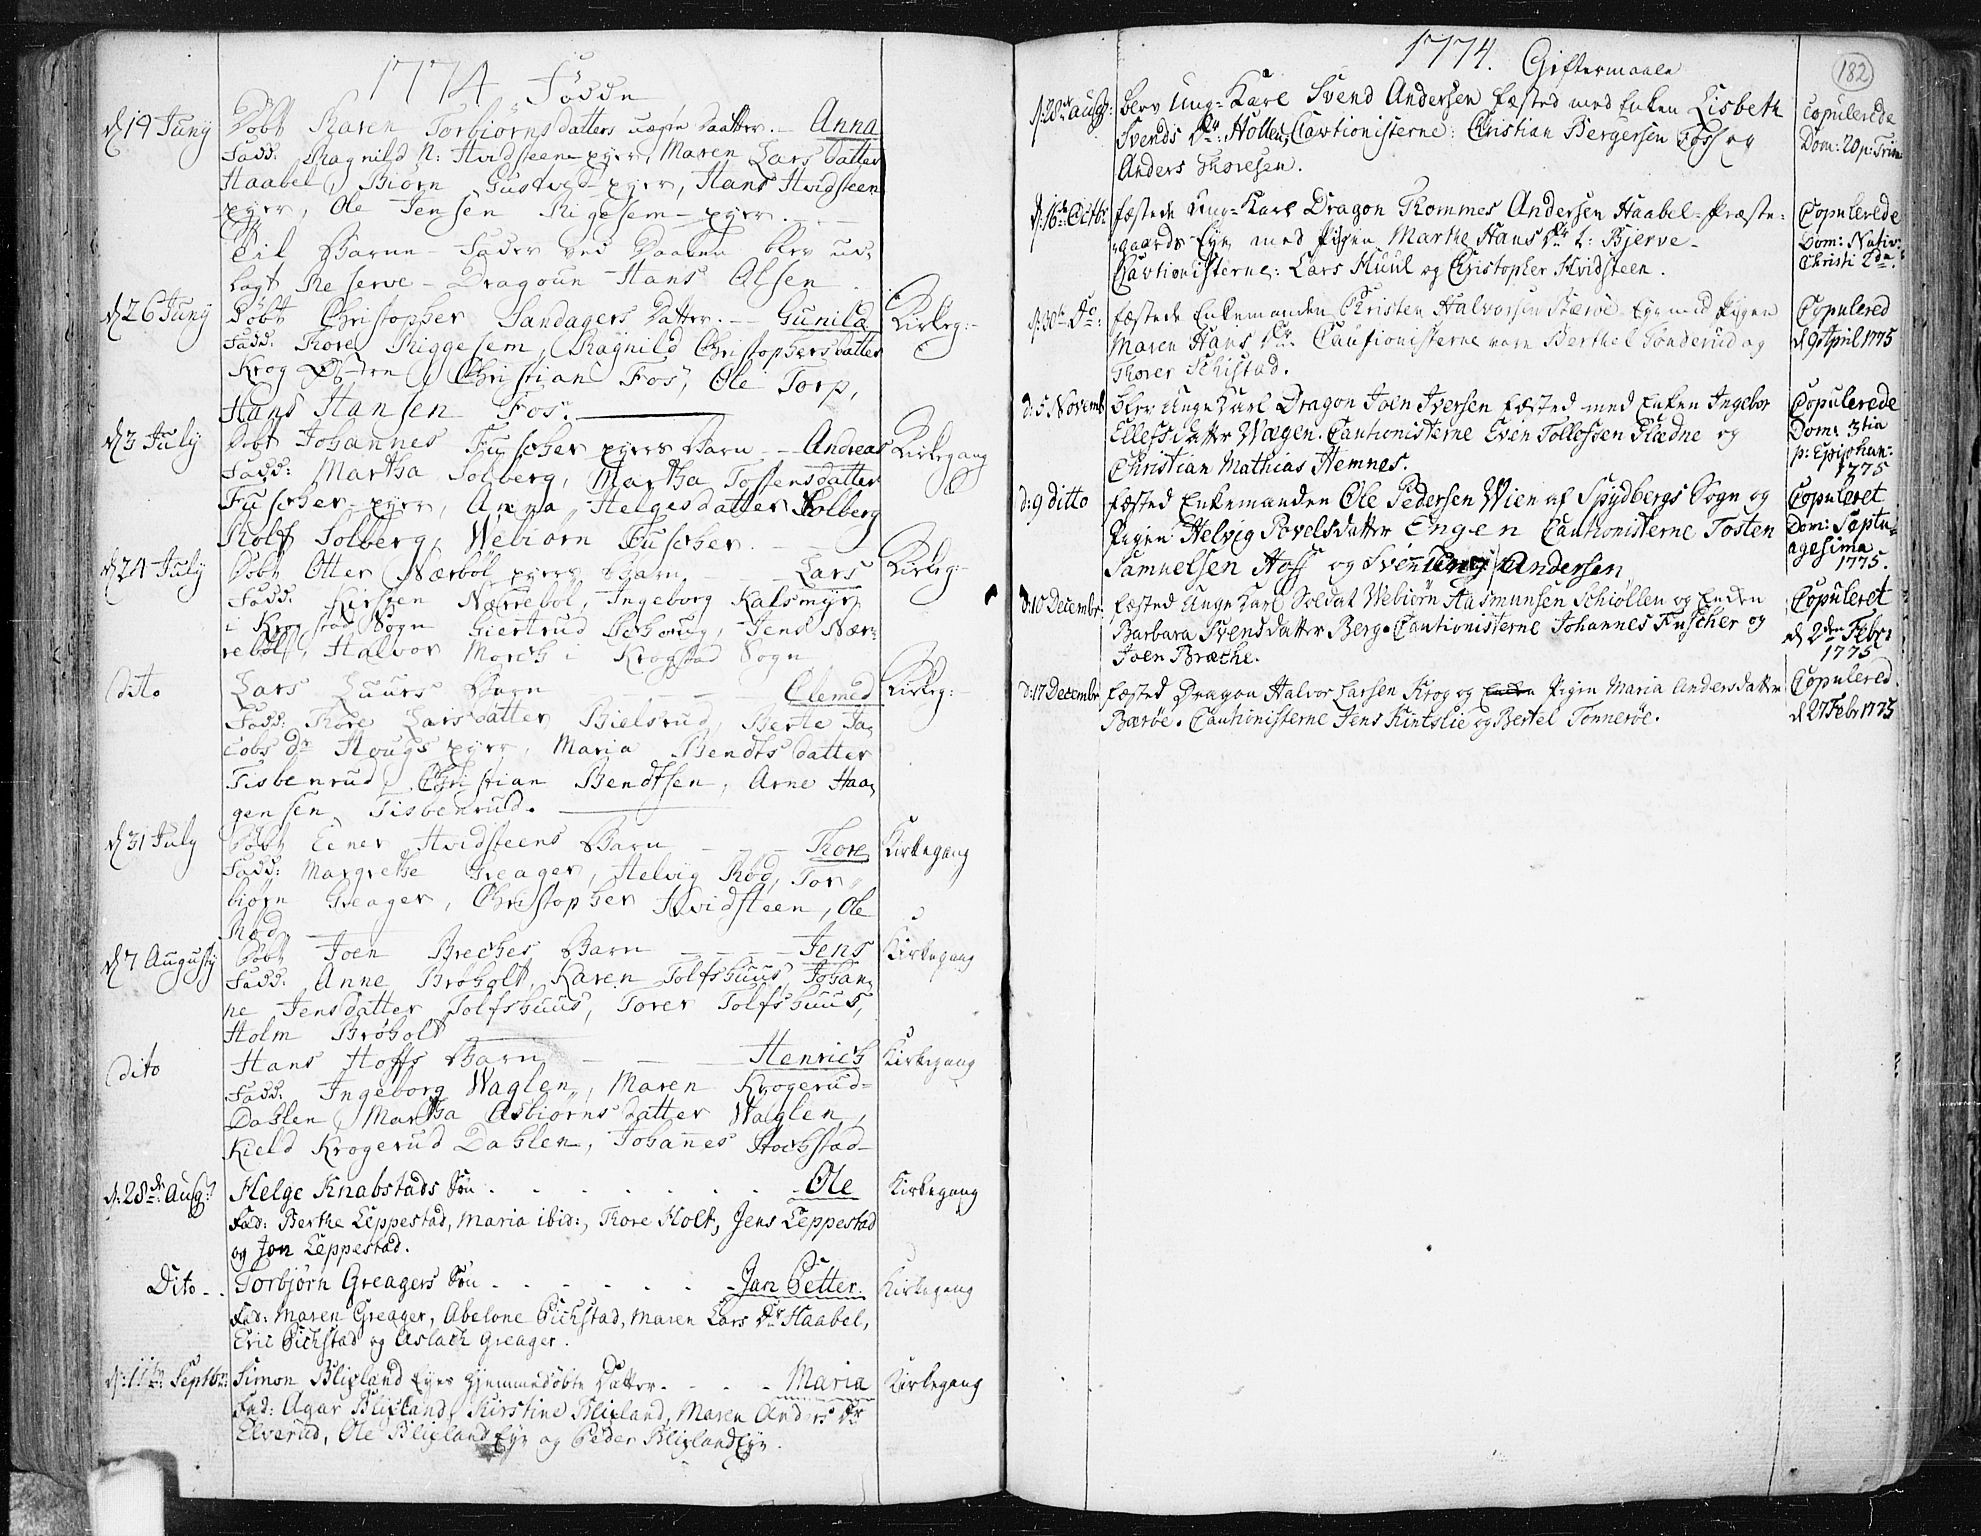 1774 Födde
d 19 Juny Döbt Karen Torbiörnsdatters uægte Daatter. – Anna
Fadd: Ragnild N: Hvidsteen-eyer, Maren Larsdatter
Haabel, Biörn Gustved-eyer, Hans Hvidsteen
eyer, Ole Jensen Rigesem-eyer.
Til Barne-Fader ved Daaben blev ud-
lagt Reserve-Dragoun Hans Olsen.
d 26 Juny Döbt Christopher Sandagers Datter. – Gunild Kirkeg:
Fadd: Thore Riggesem, Ragnild Christophersdatter
Krog Christian Fos, Ole Torp,
Hans Hansen Fos.
d 3 July Döbt Johannes Fuscher eyers Barn – Andreas Kirkegang
Fadd: Martha Solberg, Martha Tostensdatter
Fuscher-eyer, Anna Helgesdatter Solberg
Rolf Solberg, Webiörn Fuscher.
d 24 July Döbt Otter Nærböl eyers Barn Lars Kirkeg:
Fadd. Kirsten Nærreböl, Ingeborg Kalsmyr
i Krogstad Sogn Giertrud Sehoug, Jens Nær-
reböl, Halvor Morch i Krogstad Sogn
dito Lars Luurs Barn – – – Clemed Kirkeg:
Fadd: Thore Larsdatter Bielsrud, Berte Ja-
cobs dr Hougs eyer, Maria Bendtsdatter
Tisbenrud, Christian Bendtsen, Arne Haa-
gensen Tisbenrud.
d 31 July Döbt Eener Hvidsteens Barn – – – Thore Kirkegang
Fadd: Margrethe Greager, Helvig Röd, Tor-
biörn Greager, Christopher Hvidsteen, Ole
Röd.
d 7 Augusty Döbt Joen Breches Barn – – – Jens Kirkegang
Fadd: Anne Bröholt, Karen Tolfshuus, Johan-
ne Jensdatter Tolfshuus, Torer Tolfshuus,
Holm Bröholt
dito Hans Hoffs Barn – – – Henrich Kirkegang
Fadd. Ingeborg Waglen, Maren Krogerud-
Dahlen, Martha Asbiörnsdatter Waglen,
Kield Krogerud Dahlen, Johannes Hochstad
d: 28de Aug: Helge Knabstads Sön . . . . . . . Ole Kirkegang
Fad: Berthe Leppestad, Maria ibid:, Thore Holt, Jens Leppestad
og Jon Leppestad.
Dito – . Torbjörn Greagers Sön . . . . . . – Jan Petter. Kirkegang
Fad: Maren Greager, Abelone Pickstad, Maren Lars Dr Haabel,
Eric Pickstad og Aslach Greager.
d: 11te Septbr: Simon Blixland Eyes hjemmedöbte Datter . . . . – Maria Kirkegang
Fad: Agar Blixland, Kirstine Blixland, Maren Anders Dr
Elverud, Ole Blixland Eye og Peder Blixland Eye.
1774. Giftermaale 182
d. 28de Aug: blev Ung-Karl Svend Andersen fæsted med Enken Lisbeth Copulerede
Svends Dr: Hollen, Cavtionisterne: Christian Bergersen Foss og Dom: 20 p: Trin:
Anders Thoresen.
d. 16de Octb: fæstede Ung-Karl Dragon Thommes Andersen Haabel-Præste- Copulerede
-gaards Eye med Pigen Marthe Hans Dr L: Bjerve- Dom: Nativ:
Cavtionisterne: Lars Huul og Christopher Hvidsteen. Christi 2da.
d. 30te Do: fæstede Enkemanden Christen Halvorsen Bæröe Eye med Pigen Copulered
Maren Hans Dr. Cautionisterne vare Berthel Tonderud og d 9 April 1775
Thorer Schistad.
d: 5 Novemb blev Unge Karl Dragon Joen Iversen fæsted med Enken Ingebor Copulerede
Ellefsdatter Wægen. Cautionisterne Even Tollefssen Sladne og Dom: 3tia
Christian Mathias Hemnes. p: Epiphan:
1775
d: 9 ditto fæsted Enkemanden Ole Pedersen Wien af Spydbergs Sogn og Copuleret
Pigen Helvig Povelsdatter Engen Cautionisterne Tosten Dom: Septu-
Samuelsen Hoff og Sven Andersen agesima
1775.
d: 10 Decembr: fæsted Unge Karl Soldat Webiörn Aasmunsen Schiöllen og Enken Copuleret
Barbara Svensdatter Berg. Cautionisterne Johannes Fuscher og d 2den Febr:
Joen Bræche. 1775
d: 17 Decembr fæsted Dragon Halvor Larsen Krog og Enken Pigen Maria Andersdatter Copulered
Bæröe. Cautionisterne Jens Kintslie og Bertel Tonneröe. d 27 Febr 1775